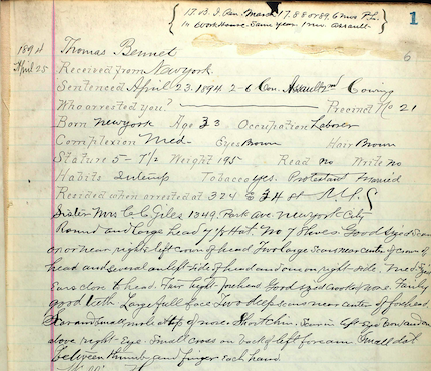 17. B. I. Pen. March 17. 88 or 89. 6 mos P.L.
in Work House - Same year. 1 mo. assault.
1
6
1894
April 25
Thomas Bennet
Received from New York.
Sentenced April 23. 1894 2-6 Con. Assault 2nd Cowing
Who arrested you? Precinct No 21
Born New York Age 33 Occupation Laborer
Complexion Med- Eyes Brown Hair Brown
Stature 5-7 1/2 Weight 195 Read no Write no
Habits Intemp Tobacco yes. Protestant Married
Resided when arrested at 324 E 34 St N.Y.C
Sister Mrs C.C. Giles 1349. Park Ave. New York City
Round and large head 7 1/8 Hat. No 7 Shoes. Good sized Scar
on or near right & left crown of head Two large Scars near center of crown of
head and several on left side of head and one on right-side. Med Sized
Ears close to head. Fair hight forehead Good sized crooked nose. Fairly
good teeth Large full face Two deep scars near center of forehead.
Scar and small mole at tip of nose. Short chin. Scar in left Eye Brow and one
above right-Eye. Small cross on back of left forearm Small dot
between thumb and finger each hand.